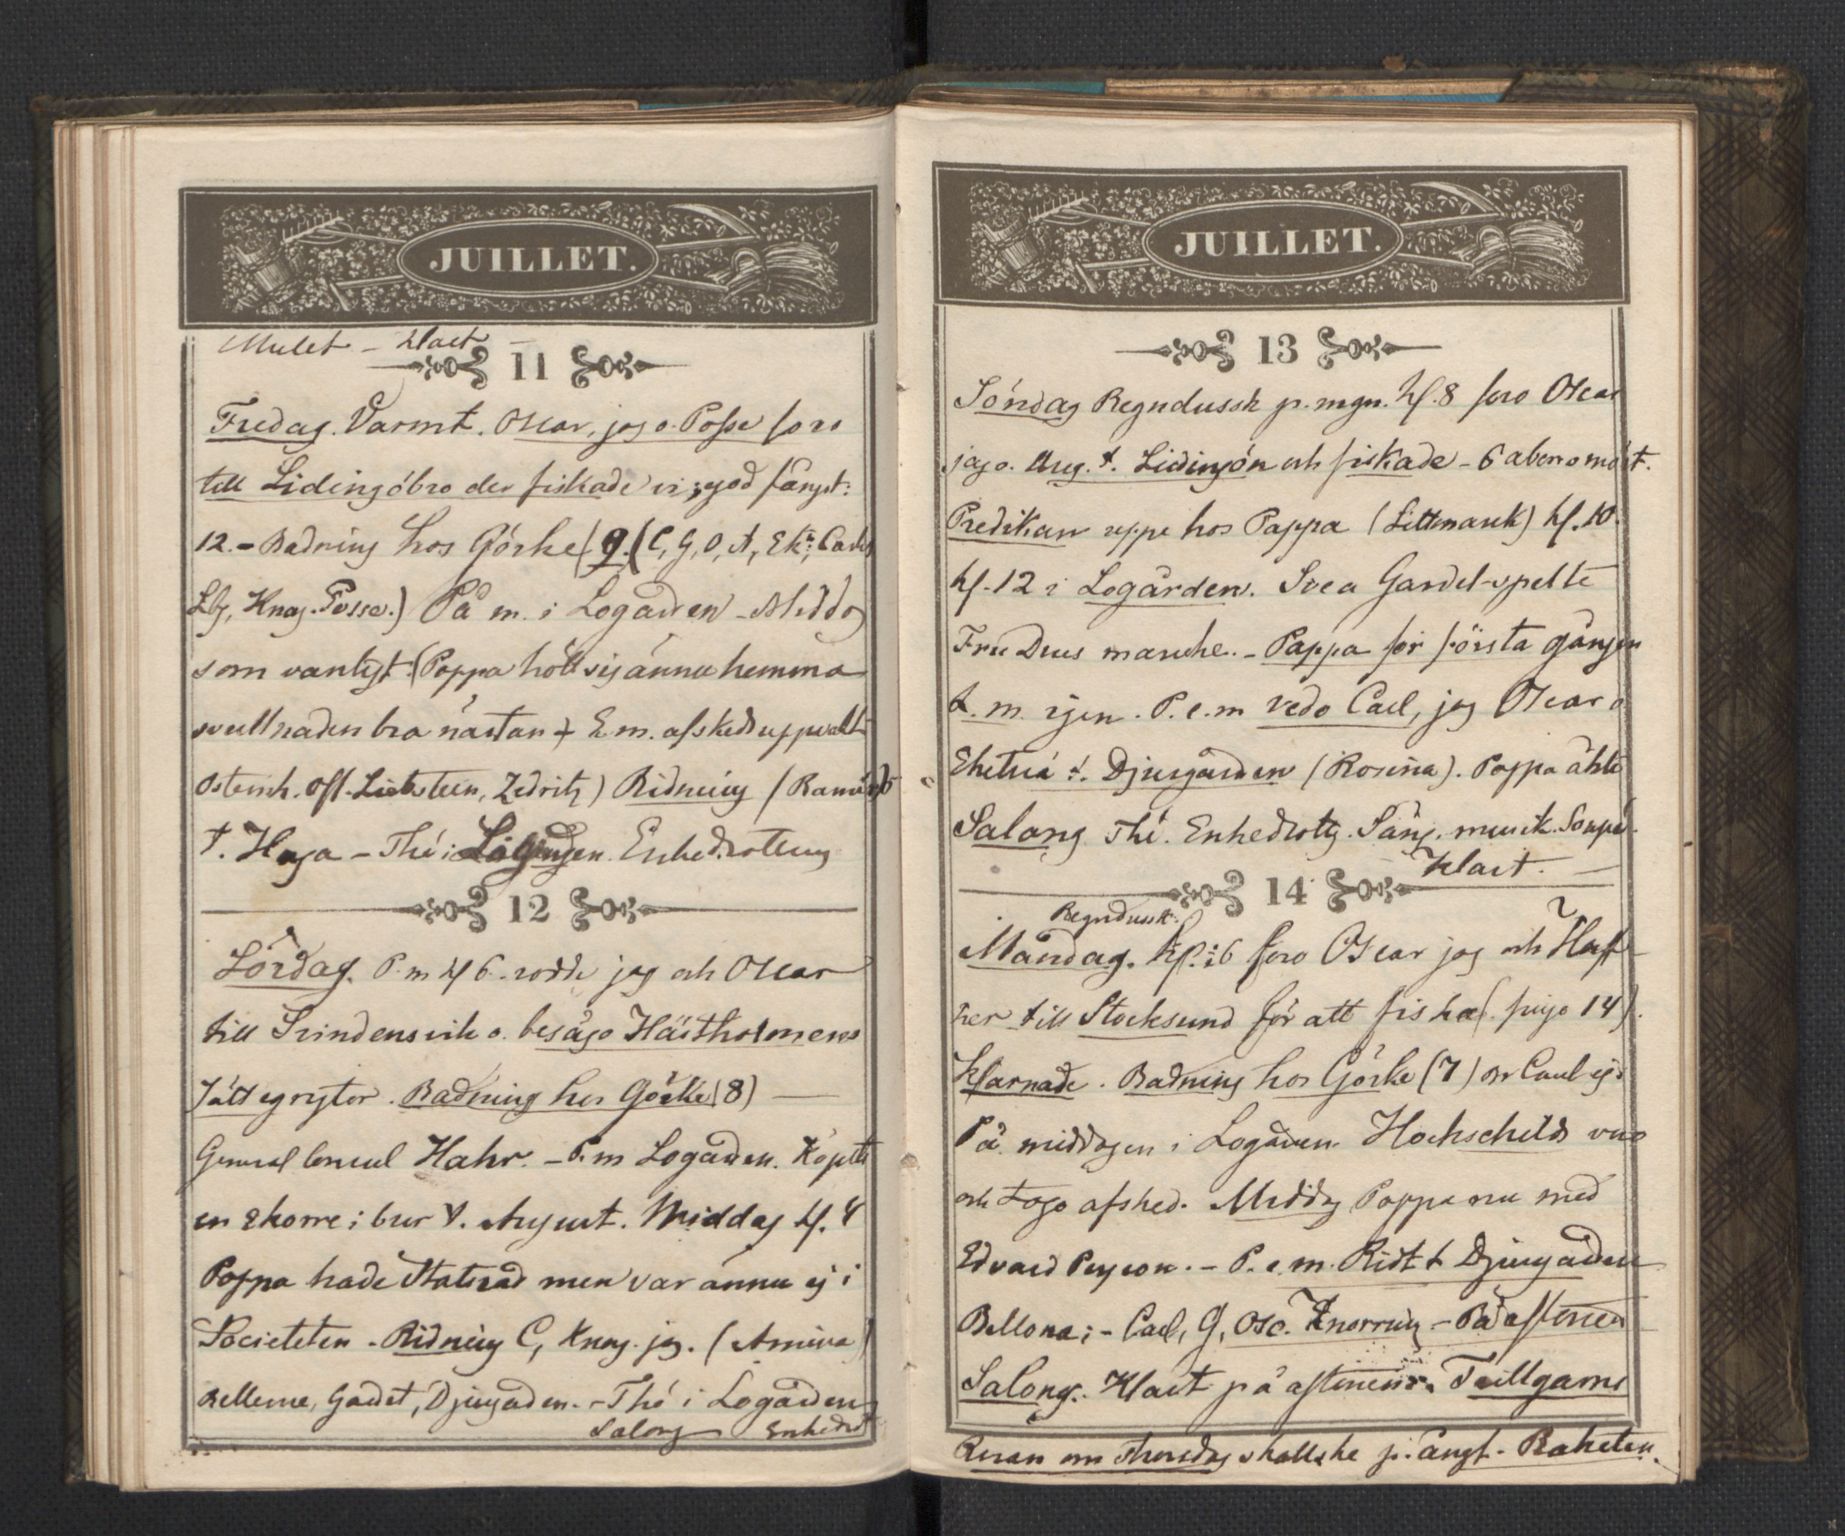 JUILLET.
Mulet – klart –
11
Fredag. Varmt. Oscar, jag o. Posse foro
till Lidingöbro der fiskade vi; god fångst:
12. – Badning hos Görke (9.) (C, G, O, A, Ek:,
Lbg, Knag. Posse.) På m. i Logården – Middag
som vanligt. (Pappa höll sig ännu hemma
svullnaden bra nästan) E m. afskedsuppvakt
Osterrich. Off. Zedritz) Ridning
t. Haga – Thé i Enhedsrotting
12
Lördag. P. m kl 6. rodde jag och Oscar
till o. besågo Hästholmens
Jättegrytor. Badning hos Görke (8) —
General Consul Hahr. – P. m Logården. Köpte
en Ekorre i bur t. August. Middag kl. 4
Pappa hade Statsråd men var ännu ej i
Societeten – Ridning C, Knag. jag. (Amina)
Bellevue, Gärdet, Djurgården. – Thé i Logården
Salong Enhedsrot
JUILLET.
13
Söndag Regndusck p. mgn. kl. 8 foro Oscar
jag o. Aug. t. Lidingön och fiskade – 6 abborro mört.
Predikan uppe hos Pappa kl. 10.
kl. 12 i Logården. Svea Gardet spelte
Fru Dues marche. – Pappa för första gången
t. m. igen. P. e. m redo Carl, jag Oscar o
t. Djurgården (Rosina). Pappa åkte
Salong Thé. Enhedsrotg. Sång. musik. Soupé.
Klart. —
14
Regndusk.
Måndag. kl. 6 foro Oscar jag och Haf-
ker till Stocksund för att fiska
Klarnade. Badning hos Görke (7) Carl ej.
På middagen i Logården. Hochschilds var
och togo afsked. Middag Pappa nu med
Edvard Peyron. – P. e. m. Ridt t Djurgården
Bellona; – Carl, G, Osc. Knorring – På aftonen
Salong. Klart på aftonen. Tullgarns
Resan om Thorsdag skall ske p. ångf. Raketen.